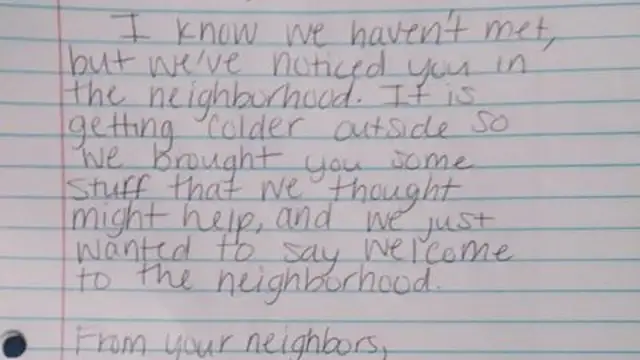 I know we haven't met,
but we've noticed you in
the neighborhood. It is
getting colder outside so
we brought you some
stuff that we thought
might help, and we just
wanted to say welcome
to the neighborhood.
From your neighbors,